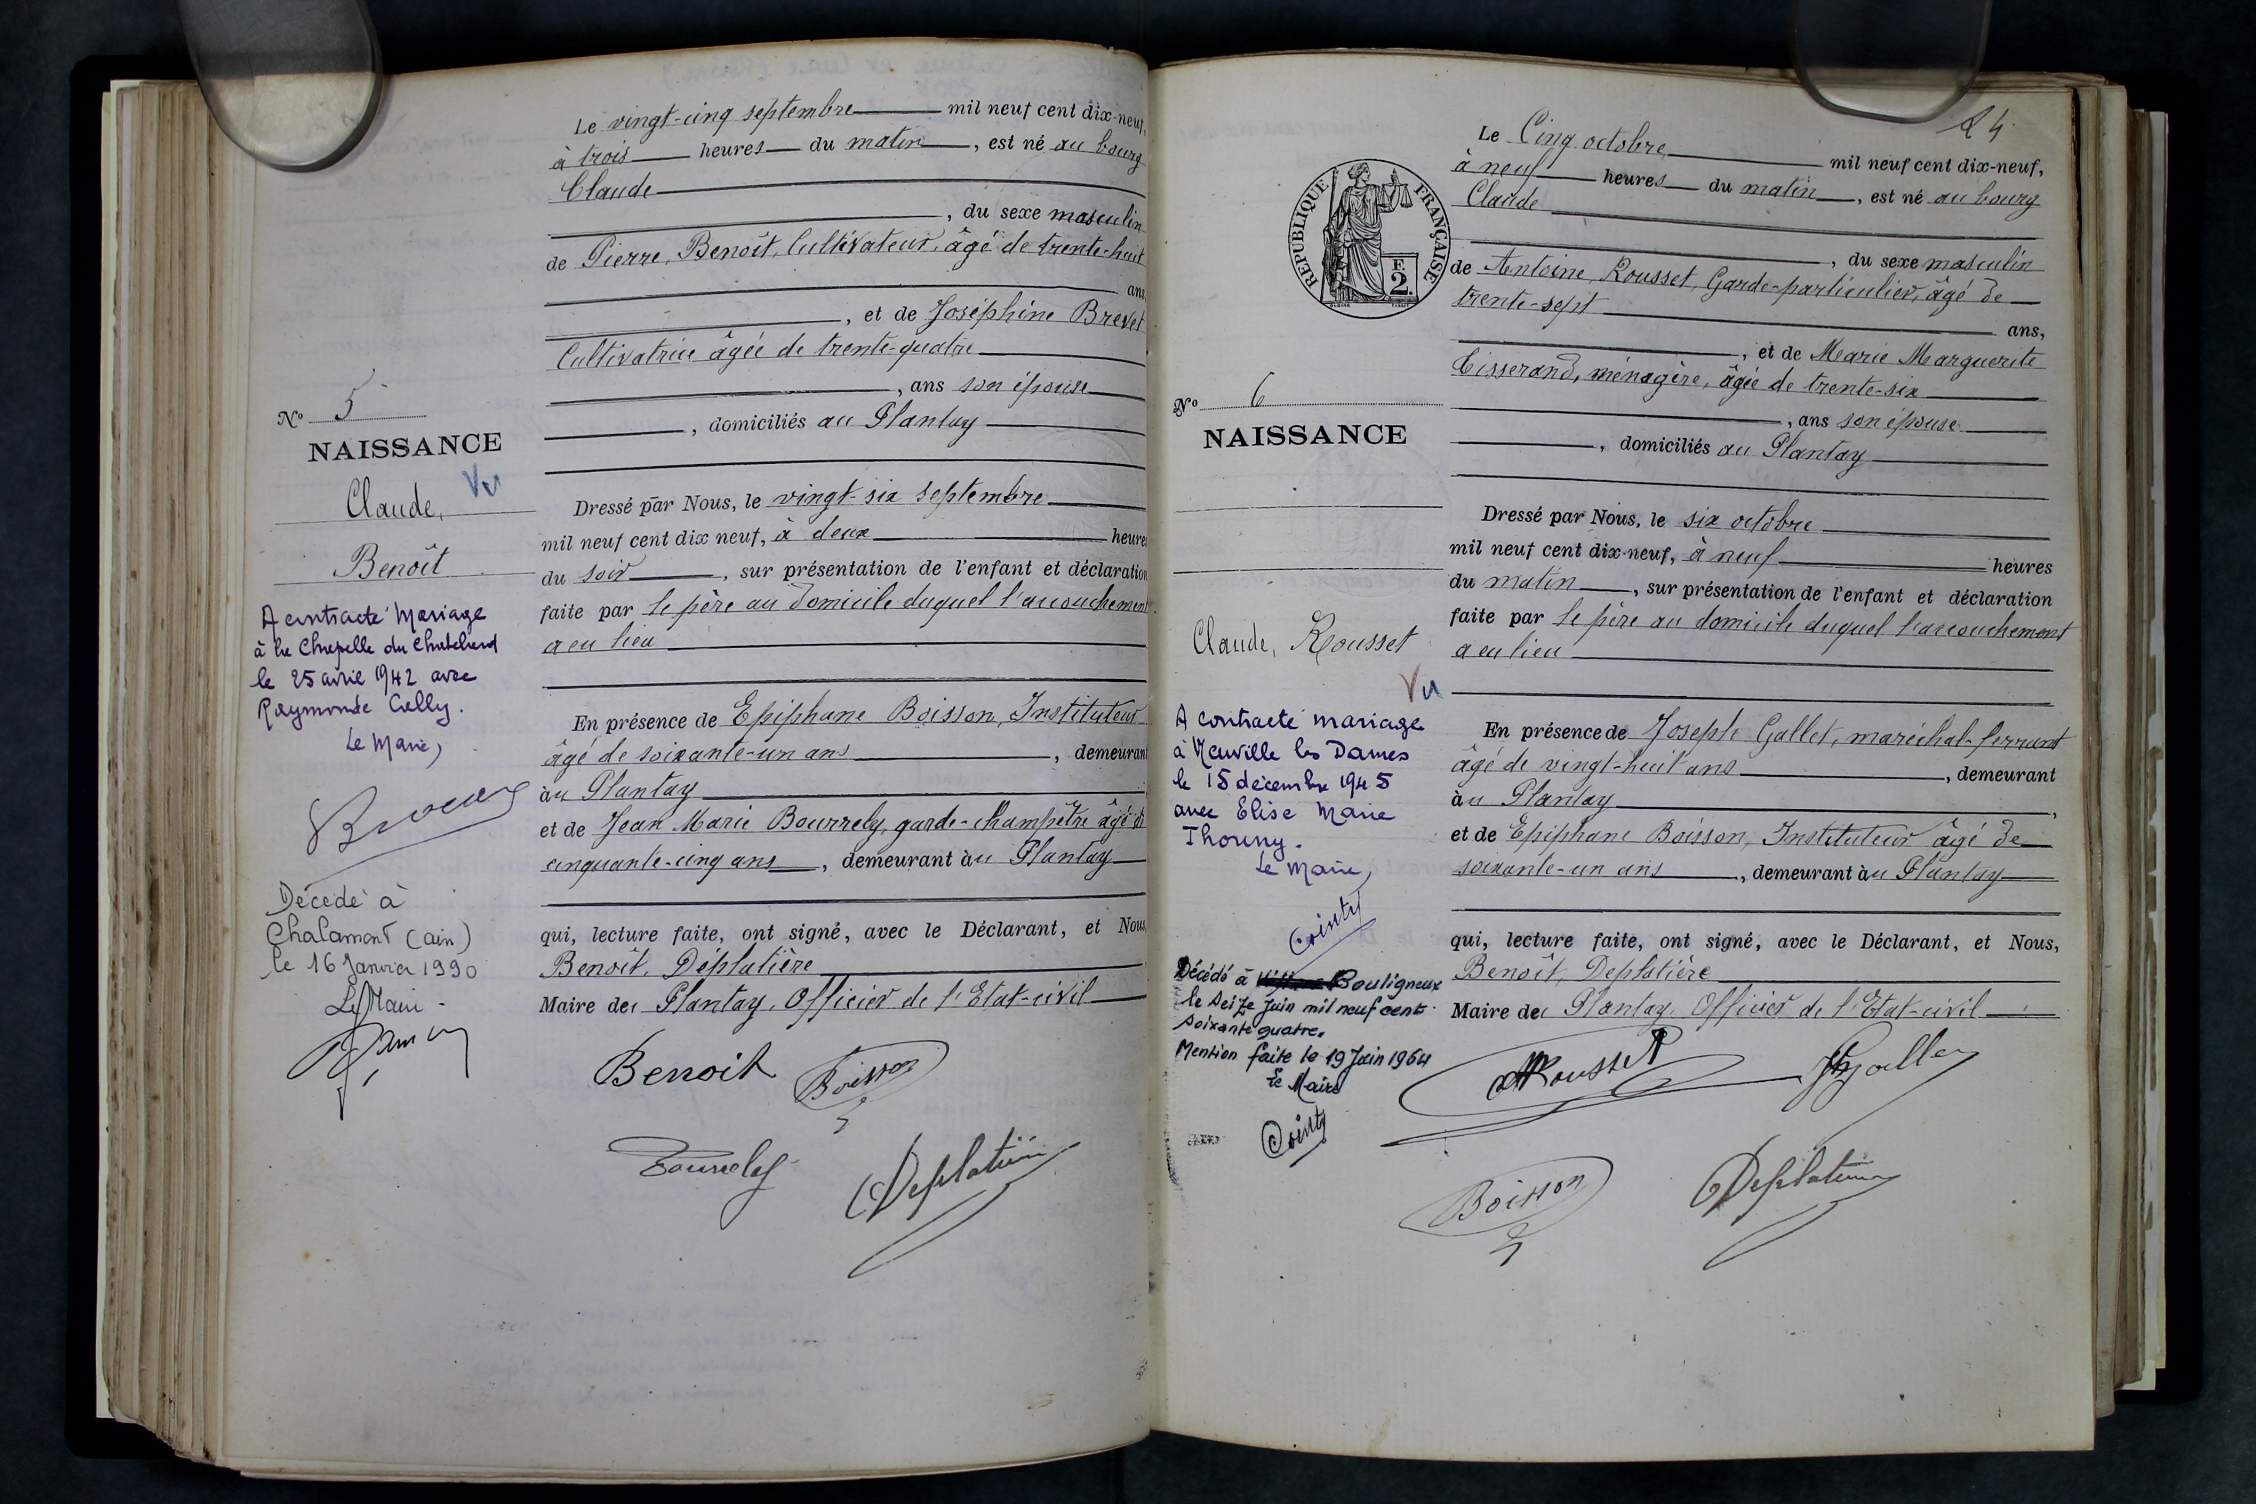 Le vingt-cinq septembre mil neuf cent dix-neuf,
à trois heures du matin, est né au bourg
Claude
, du sexe masculin
de Pierre, Benoît, Cultivateur, âgé de trente-huit
ans,
, et de Joséphine Brevet
Cultivatrice âgée de trente-quatre
, ans son épouse
, domiciliés au Plantay
Nº 5
NAISSANCE
Vu
Claude,
Benoît
A contracté mariage
à la Chapelle du Chatelard
le 25 avril 1942 avec
Raymonde
Le Maire,
Décédé à
Chalamont (ain)
le 16 Janvier 1990
Le Maire
Dressé par Nous, le vingt-six septembre
mil neuf cent dix neuf, à deux heures
du soir, sur présentation de l'enfant et déclaration
faite par le père au domicile duquel l'accouchement
a eu lieu
En présence de Epiphane Boisson, Instituteur
âgé de soixante-un ans, demeurant
àu Plantay
et de Jean Marie Bourrely, garde-champêtre âgé de
cinquante-cinq ans, demeurant àu Plantay
qui, lecture faite, ont signé, avec le Déclarant, et Nous,
Benoît, Déplatière
Maire de Plantay, Officier de l'Etat-civil
Benoit Boisson
Bourrely Deplatière
24
Le Cinq octobre mil neuf cent dix-neuf,
à neuf heures du matin, est né au bourg
Claude
RÉPUBLIQUE FRANÇAISE
2 F.
, du sexe masculin
de Antoine, Rousset, Garde-particulier, âgé de
trente-sept
ans,
, et de Marie Marguerite
Tisserand, ménagère, âgée de trente-six
, ans son épouse
, domiciliés au Plantay
Nº 6
NAISSANCE
Claude, Rousset
Vu
A contracté mariage
à Neuville les Dames
le 15 décembre 1945
avec Elise Marie
Thouny.
Le Maire,
Cointy
Décédé à Bouligneux
le seize Juin mil neuf cent
soixante quatre.
Mention faite le 19 Juin 1964
Le Maire
Cointy
Dressé par Nous, le six octobre
mil neuf cent dix-neuf, à neuf heures
du matin, sur présentation de l'enfant et déclaration
faite par le père au domicile duquel l'accouchement
a eu lieu
En présence de Joseph Gallet, maréchal-ferrant
âgé de vingt-huit ans, demeurant
àu Plantay
et de Epiphane Boisson, Instituteur âgé de
soixante-un ans, demeurant àu Plantay
qui, lecture faite, ont signé, avec le Déclarant, et Nous,
Benoît, Deplatière
Maire de Plantay, Officier de l'Etat-civil
Rousset Gallet
Boisson Deplatière